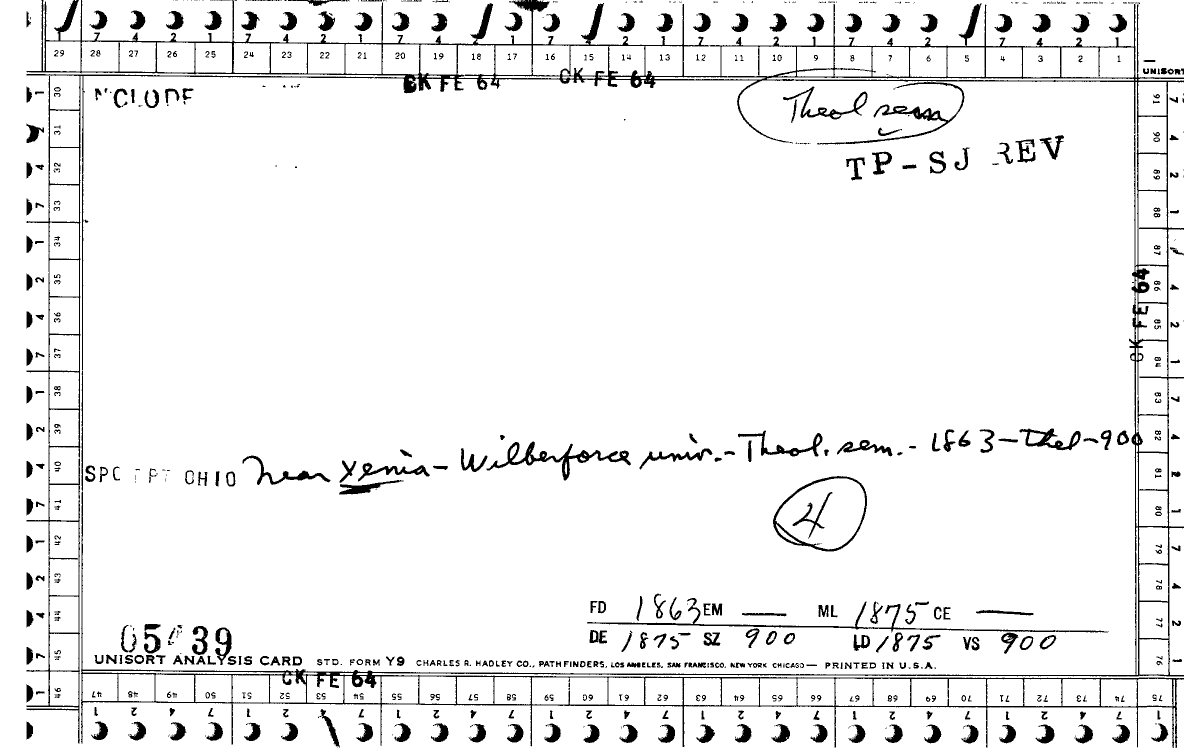 7 4 2 1 7 4 2 1 7 4 2 1 7 4 2 1 7 4 2 1 7 4 2 1 7 4 2 1
29 28 27 26 25 24 23 22 21 20 19 18 17 16 15 14 13 12 11 10 9 8 7 6 5 4 3 2 1
UNISORT
CK FE 64 CK FE 64
Theol sem
TP-SJ REV
30 31 32 33 34 35 36 37 38 39 40 41 42 43 44 45 46
91 90 89 88 87 86 85 84 83 82 81 80 79 78 77 76
CK FE 64
OHIO near Xenia - Wilberforce univ. - Theol. sem. - 1863 - Thel - 900
4
FD 1863 EM — ML 1875 CE —
DE 1875 SZ 900 LD 1875 VS 900
UNISORT ANALYSIS CARD STD. FORM Y9 CHARLES R. HADLEY CO., PATHFINDERS, LOS ANGELES, SAN FRANCISCO, NEW YORK CHICAGO — PRINTED IN U.S.A.
CK FE 64
47 48 49 50 51 52 53 54 55 56 57 58 59 60 61 62 63 64 65 66 67 68 69 70 71 72 73 74 75
1 2 4 7 1 2 4 7 1 2 4 7 1 2 4 7 1 2 4 7 1 2 4 7 1 2 4 7 1